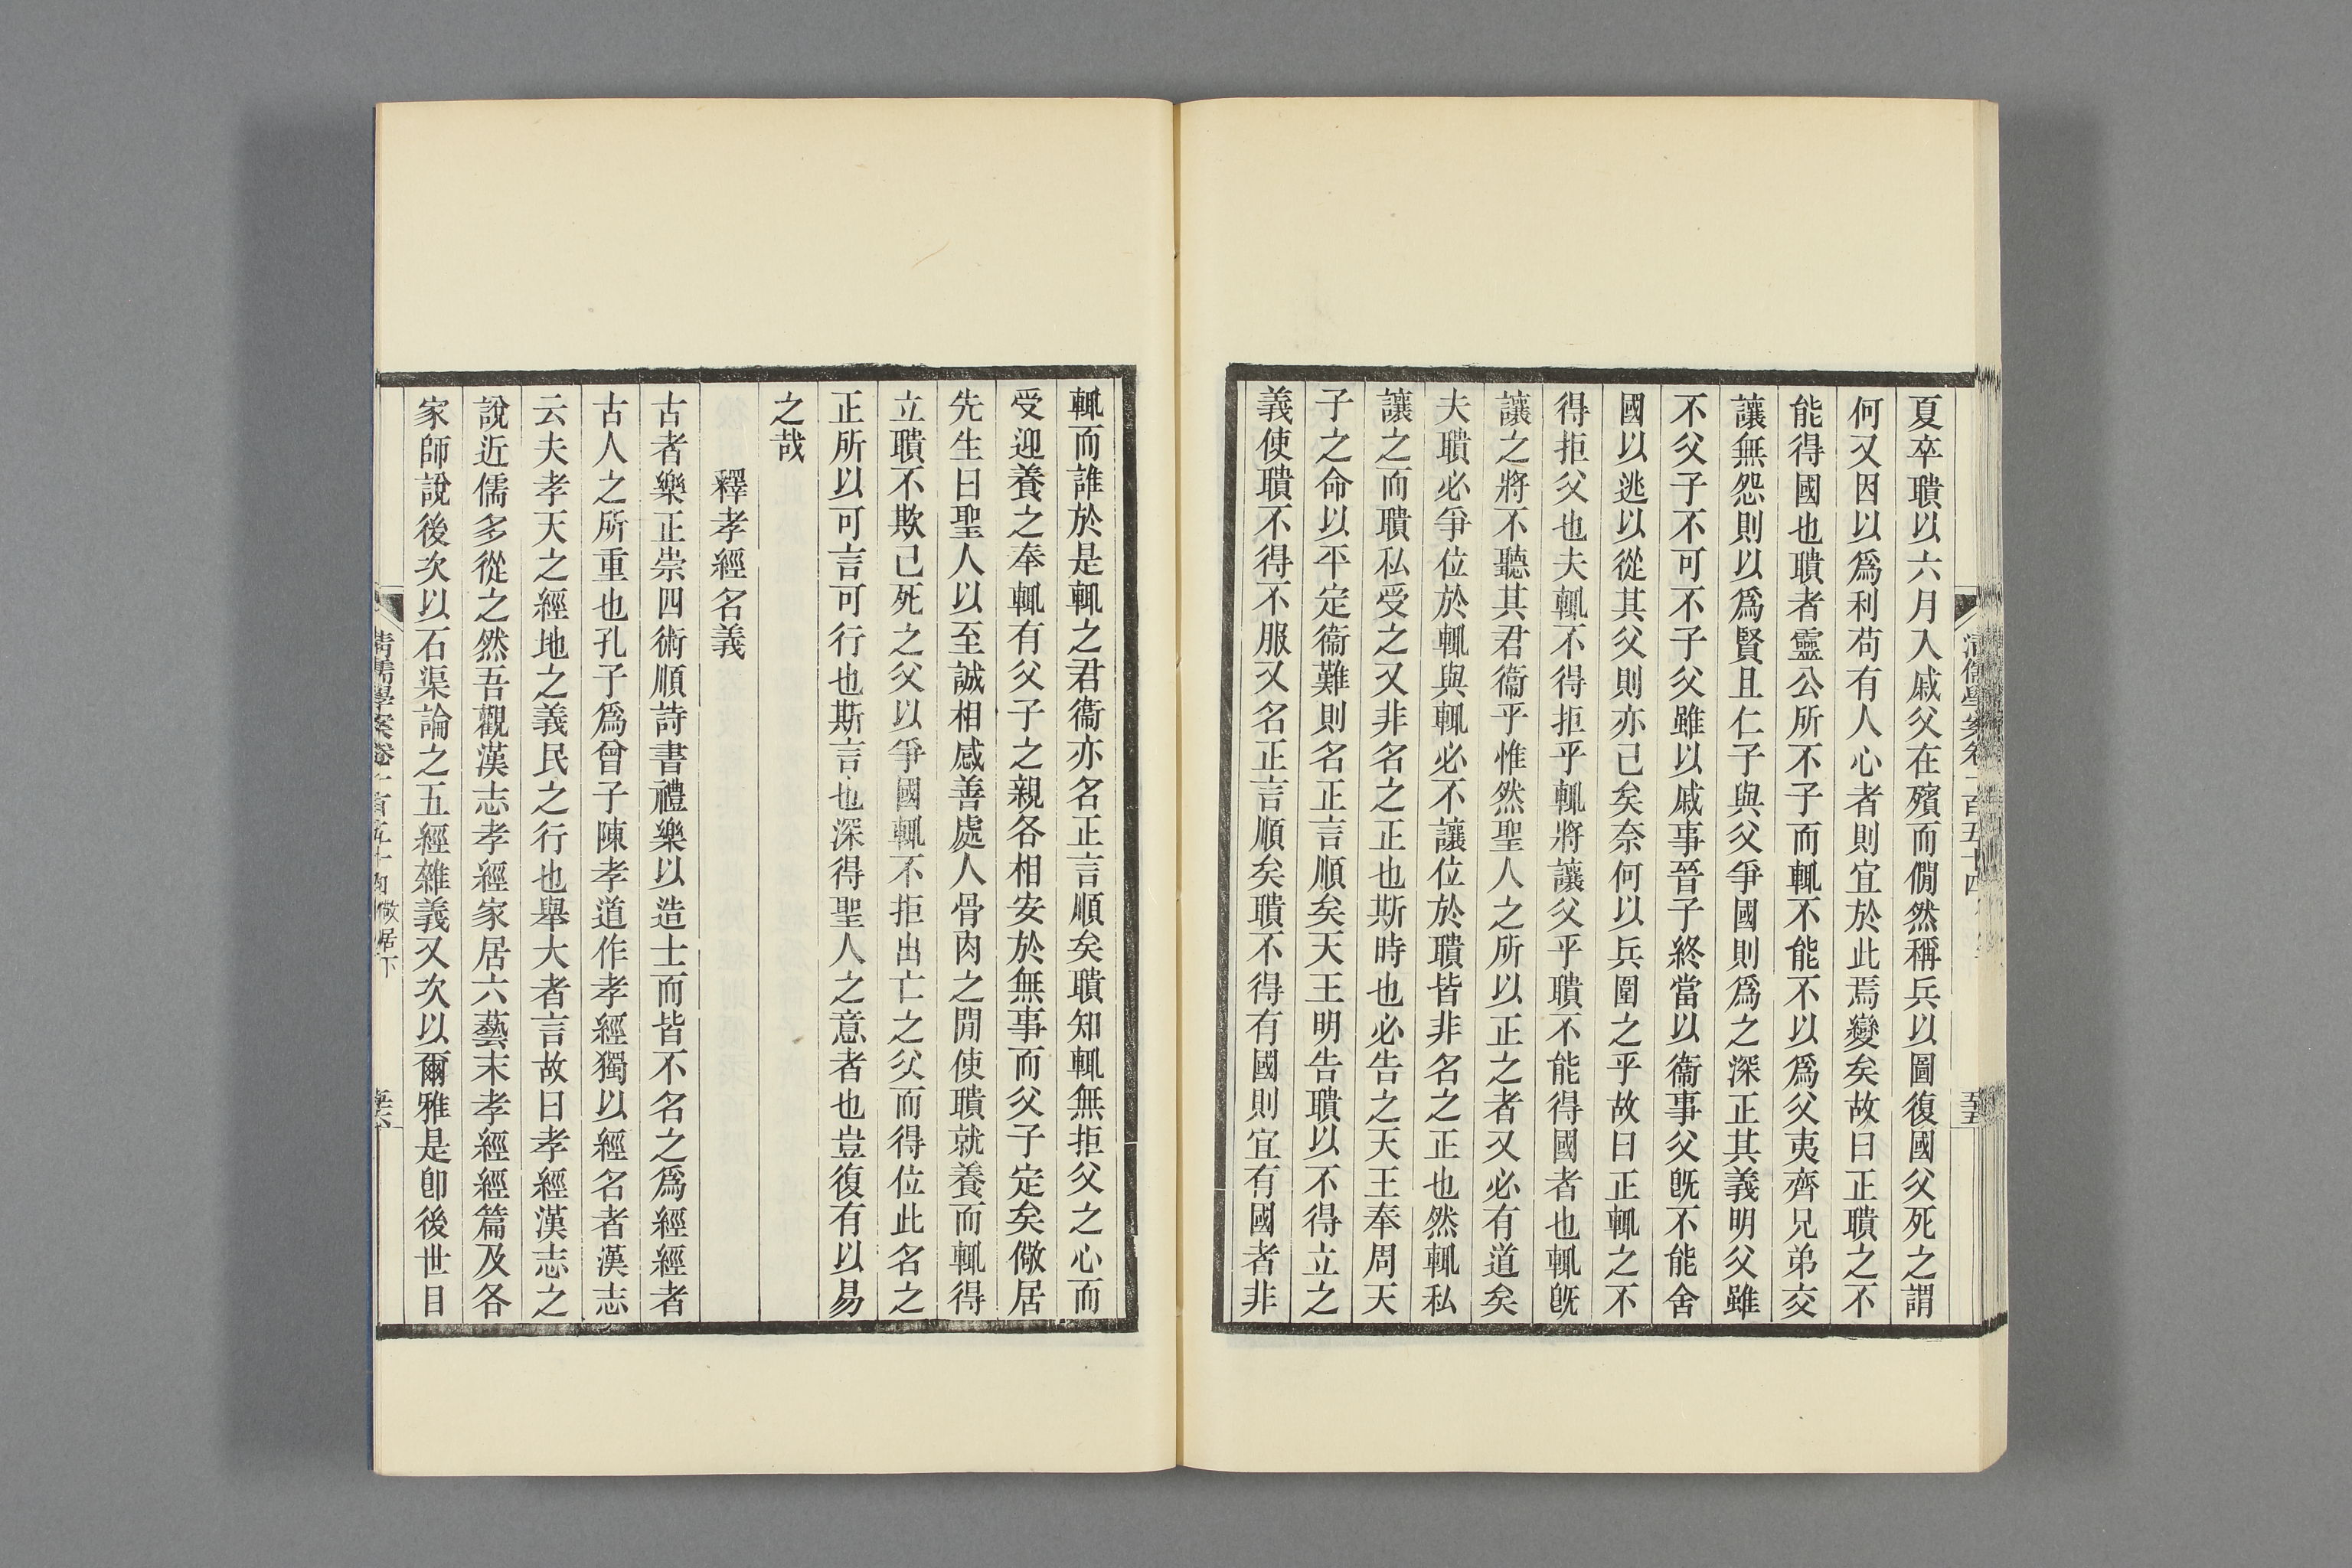 夏卒聵以六月入戚父在殯而僩然稱兵以圖復國父死之謂
何又因以爲利苟有人心者則宜於此焉變矣故曰正聵之不
能得國也聵者靈公所不子而輒不能不以爲父夷齊兄弟交
讓無怨則以爲賢且仁子與父爭國則爲之深正其義明父雖
不父子不可不子父雖以戚事晉子終當以衞事父旣不能舍
國以逃以從其父則亦已矣奈何以兵圍之乎故曰正輒之不
得拒父也夫輒不得拒乎輒將讓父乎聵不能得國者也輒旣
讓之將不聽其君衞乎惟然聖人之所以正之者又必有道矣
夫聵必爭位於輒與輒必不讓位於聵皆非名之正也然輒私
讓之而聵私受之又非名之正也斯時也必告之天王奉周天
子之命以平定衞難則名正言順矣天王明告聵以不得立之
義使聵不得不服又名正言順矣聵不得有國則宜有國者非
輒而誰於是輒之君衞亦名正言順矣聵知輒無拒父之心而
受迎養之奉輒有父子之親各相安於無事而父子定矣儆居
先生曰聖人以至誠相感善處人骨肉之閒使聵就養而輒得
立聵不欺已死之父以爭國輒不拒出亡之父而得位此名之
正所以可言可行也斯言也深得聖人之意者也豈復有以易
之哉
釋孝經名義
古者樂正崇四術順詩書禮樂以造士而皆不名之爲經經者
古人之所重也孔子爲曾子陳孝道作孝經獨以經名者漢志
云夫孝天之經地之義民之行也舉大者言故曰孝經漢志之
說近儒多從之然吾觀漢志孝經家居六藝末孝經經篇及各
家師說後次以石渠論之五經雜義又次以爾雅是卽後世目
清儒學案卷一百五十四 儆居下